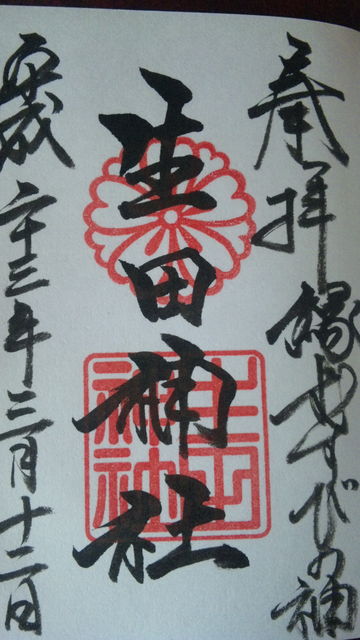 奉拝 縁むすびの神
生田神社
生田神社
平成二十三年三月十二日